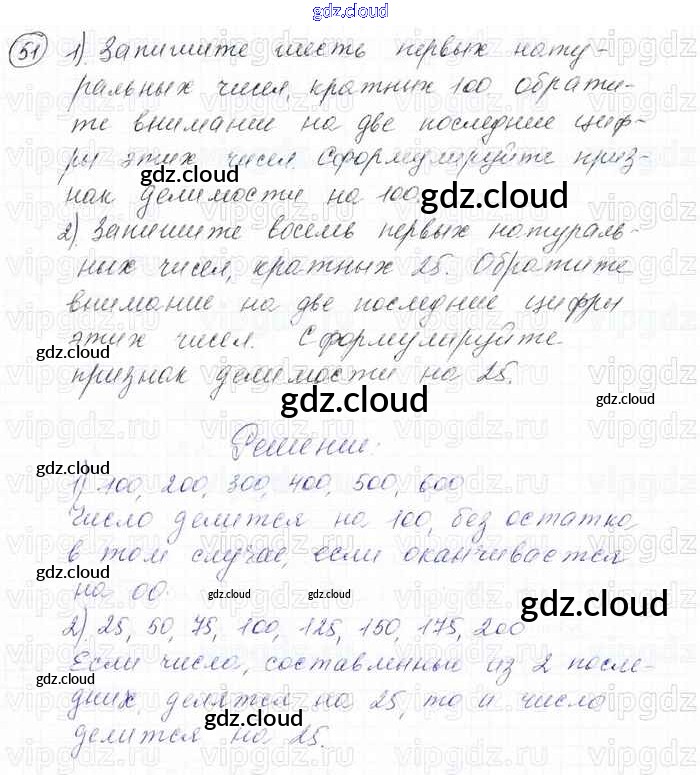 gdz.cloud
51 1). Запишите шесть первых нату-
ральных чисел, кратных 100 обрати-
те внимание на две последние циф-
ры этих чисел. Сформулируйте приз-
нак делимости на 100.
2). Запишите восемь первых натураль-
ных чисел, кратных 25. Обратите
внимание на две последние цифры
этих чисел. Сформулируйте
признак делимости на 25.
Решение:
1) 100, 200, 300, 400, 500, 600
Число делится на 100, без остатка
в том случае, если оканчивается
на 00.
2). 25, 50, 75, 100, 125, 150, 175, 200
Если число, составленные из 2 после-
дних, делятся на 25, то и число
делится на 25.